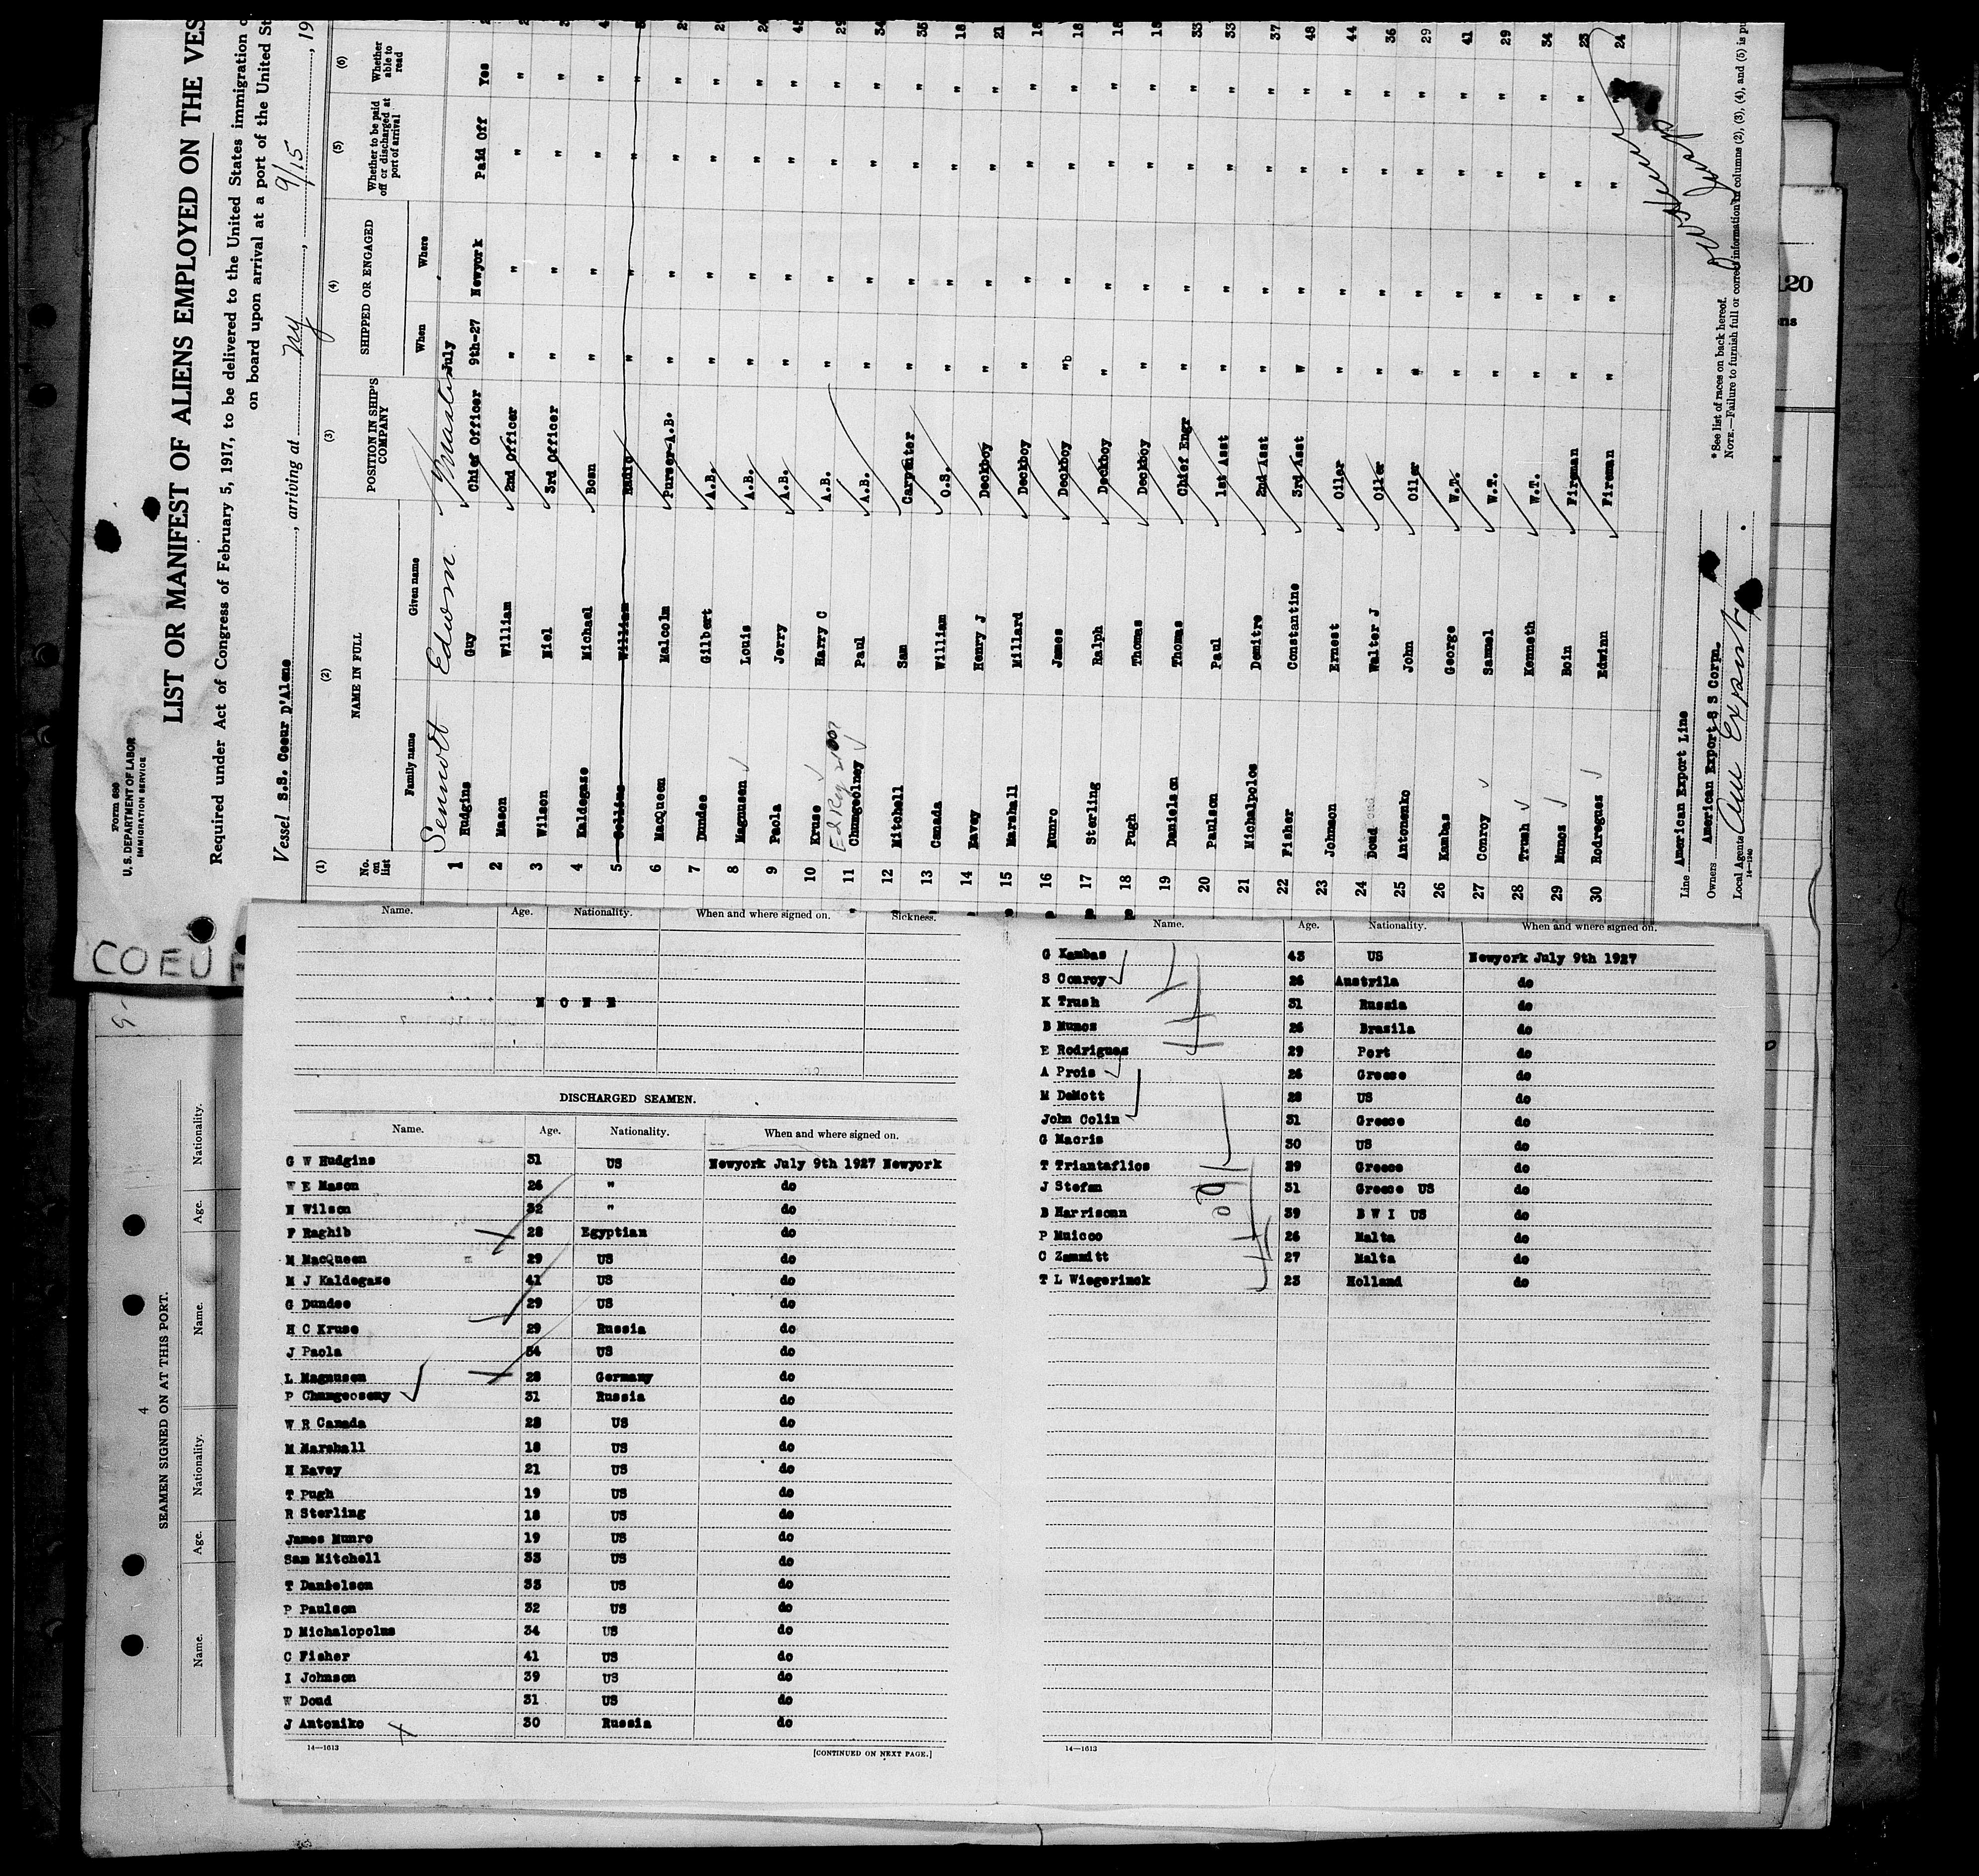 Form 689
U. S. DEPARTMENT OF LABOR
IMMIGRATION SERVICE
LIST OR MANIFEST OF ALIENS EMPLOYED ON THE VES
Required under Act of Congress of February 5, 1917, to be delivered to the United States immigration
on board upon arrival at a port of the United St
Vessel S.S. Coeur D'Alene, arriving at NY, 9/15, 19
(1) (2) (3) (4) (5) (6)
No. on list NAME IN FULL POSITION IN SHIP'S COMPANY SHIPPED OR ENGAGED Whether to be paid off or discharged at port of arrival Whether able to read
Family name Given name When Where
Sennott Edwin Master July
1 Hudgins Guy Chief Officer 9th-27 Newyork Paid Off Yes
2 Mason William 2nd Officer " " " "
3 Wilson Niel 3rd Officer " " " "
4 Kaldegaze Michael Bosn " " " "
5 Collins William Radio " " " "
6 MacQueen Malcolm Purser-A.B. " " " " 29
7 Dundee Gilbert A.B. " " " " 29
8 Magnusen Louis A.B. " " " "
9 Paola Jerry A.B. " " " " 45
10 Kruse Harry C A.B. " " " " 29
11 Chungeolney Paul A.B. " " " " 34
12 Mitchell Sam Carpenter " " " " 35
13 Canada William O.S. " " " " 18
14 Eavey Henry J Deckboy " " " " 21
15 Marshall Millard Deckboy " " " " 18
16 Munro James Deckboy "b " " " 18
17 Sterling Ralph Deckboy " " " " 18
18 Pugh Thomas Deckboy " " " " 18
19 Danielson Thomas Chief Engr " " " " 33
20 Paulson Paul 1st Asst " " " " 33
21 Michalpolos Demitre 2nd Asst " " " " 37
22 Fisher Constantine 3rd Asst W " " " 48
23 Johnson Ernest Oiler " " " " 44
24 Doud Walter J Oiler " " " " 36
25 Antonenko John Oiler " " " " 29
26 Kambas George W.T. " " " " 41
27 Conroy Samuel W.T. " " " " 29
28 Trush Kenneth W.T. " " " " 34
29 Munos Boin Fireman " " " " 23
30 Rodregues Edwinn Fireman " " " " 24
Line American Export Line
Owners American Export S S Corpn.
Local Agents Am Export
14—1940
* See list of races on back hereof.
NOTE.—Failure to furnish full or correct information in columns (2), (3), (4), and (5) is pu
COEUR
120
ons
Name. Age. Nationality. When and where signed on. Sickness.
N O N E
DISCHARGED SEAMEN.
Name. Age. Nationality. When and where signed on.
G W Hudgins 31 US Newyork July 9th 1927 Newyork
W E Mason 26 " do
N Wilson 32 " do
F Raghib 28 Egyptian do
M MacQueen 29 US do
M J Kaldegaze 41 US do
G Dundee 29 US do
H C Kruse 29 Russia do
J Paola 54 US do
L Magnusen 28 Germany do
P Chungeoseny 31 Russia do
W R Canada 28 US do
M Marshall 18 US do
H Eavey 21 US do
T Pugh 19 US do
R Sterling 18 US do
James Munro 19 US do
Sam Mitchell 33 US do
T Danielson 33 US do
P Paulson 32 US do
D Michalopolus 34 US do
C Fisher 41 US do
I Johnson 39 US do
W Doud 31 US do
J Antoniko 30 Russia do
14—1613
[CONTINUED ON NEXT PAGE.]
Name. Age. Nationality. When and where signed on.
G Kambas 43 US Newyork July 9th 1927
S Conroy 26 Austrila do
K Trush 31 Russia do
B Munos 26 Brasila do
E Rodrigues 29 Port do
A Prois 26 Greese do
M DeMott 28 US do
John Colin 31 Greece do
G Macris 30 US do
T Triantaflios 29 Greese do
J Stefan 31 Greese US do
B Harrisonn 39 B W I US do
P Muicco 26 Malta do
C Zammitt 27 Malta do
T L Wiegerinck 23 Holland do
14—1613
4
SEAMEN SIGNED ON AT THIS PORT.
Name. Age. Nationality. Name. Age. Nationality.